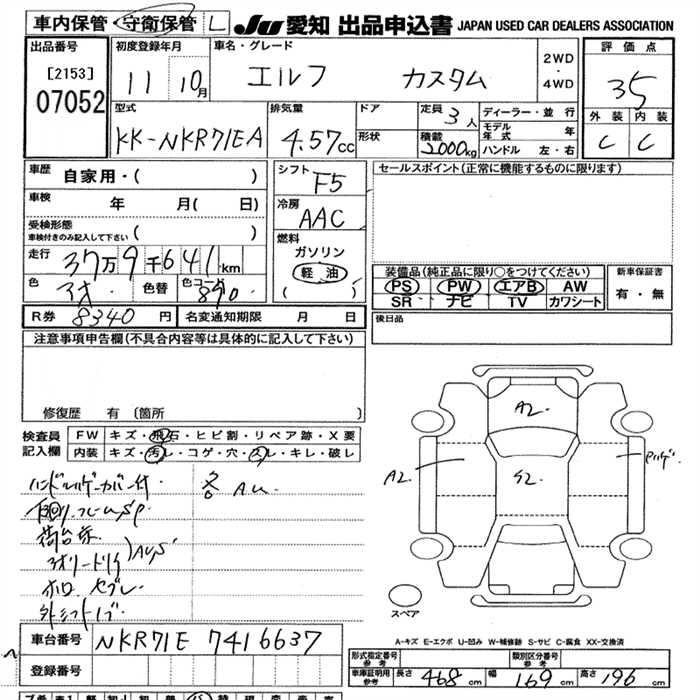 車内保管・守衛保管 L JU 愛知 出品申込書 JAPAN USED CAR DEALERS ASSOCIATION
出品番号 初度登録年月 車名・グレード 2WD・4WD 評価点
[2153] 11 10月 エルフ カスタム 35
07052 外装 内装
型式 排気量 ドア 定員 3人 ディーラー・並行
KK-NKR71EA 4.57cc 形状 積載 2000kg モデル年式 年 C C
ハンドル 左・右
車歴 自家用・( ) シフト F5 セールスポイント(正常に機能するものに限ります)
車検 年 月( 日) 冷房 AAC
受検形態
車検付きのみ記入して下さい ( ) 燃料
走行 37万9千641km ガソリン
軽油 装備品(純正品に限り○をつけてください) 新車保証書
色 色替 色コード 890 ( ) PS PW エアB AW 有・無
SR ナビ TV カワシート
R券 8340円 名変通知期限 月 日 後日品
注意事項申告欄(不具合内容等は具体的に記入して下さい)
修復歴 有 〔箇所 〕
検査員記入欄 FW キズ・飛石・ヒビ割・リペア跡・X要
内装 キズ・汚レ・コゲ・穴・スレ・キレ・破レ
A2
A2 S2
各 AU
下回リ・フレームSP
荷台
ホロ
スペア
A-キズ E-エクボ U-凹み W-補修跡 S-サビ C-腐食 XX-交換済
車台番号 NKR71E 7416637
登録番号
形式指定番号 参考 類別区分番号 参考
車庫証明用参考 長さ 468cm 幅 169cm 高さ 196cm